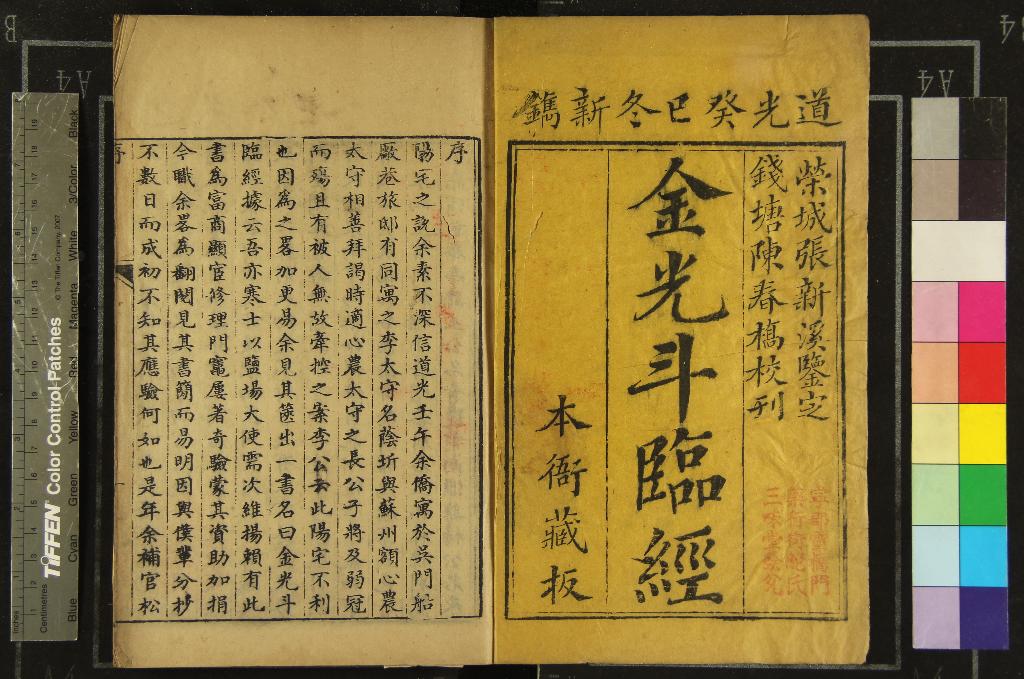 道光癸巳冬新鐫
榮城張新溪鑒定
錢塘陳春橋校刊
金光斗臨經
本衙藏板
序
陽宅之說余素不深信道光壬午余僑寓於吳門船
廠巷旅邸有同寓之李太守名蔭圻與蘇州額心農
太守相善拜謁時適心農太守之長公子將及弱冠
而殤且有被人無故牽控之案李公云此陽宅不利
也因為之畧加更易余見其篋出一書名曰金光斗
臨經據云吾亦寒士以鹽場大使需次維揚賴有此
書為富商顯宦修理門竈屢著奇驗蒙其資助加捐
今職余畧為翻閱見其書簡而易明因與僕輩分抄
不數日而成初不知其應驗何如也是年余補官松
序
TIFFEN Color Control Patches
© The Tiffen Company, 2007
Inches
Centimetres
Blue
Cyan
Green
Yellow
Red
Magenta
White
3/Color
Black
A4
A4
A4
B